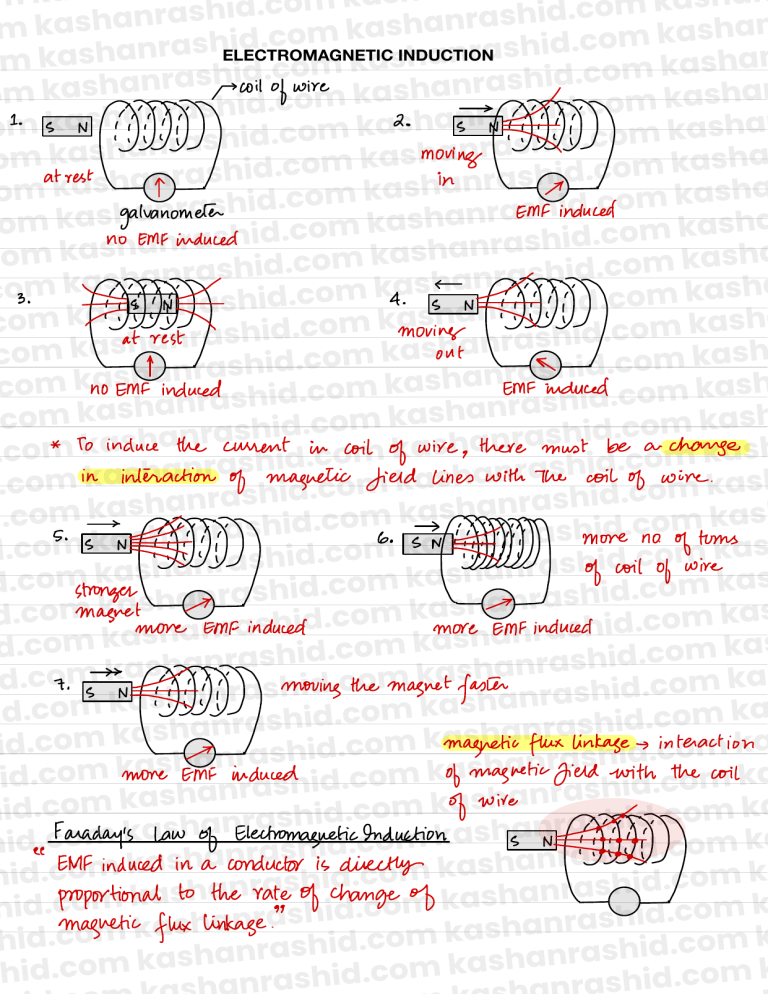 ELECTROMAGNETIC INDUCTION
→ coil of wire
1.
S N
at rest
galvanometer
no EMF induced
2.
S N
moving
in
EMF induced
3.
S N
at rest
no EMF induced
4.
S N
moving
out
EMF induced
* To induce the current in coil of wire, there must be a change
in interaction of magnetic field lines with the coil of wire.
5.
S N
stronger
magnet
more EMF induced
6.
S N
more no of turns
of coil of wire
more EMF induced
7.
S N
moving the magnet faster
more EMF induced
magnetic flux linkage → interaction
of magnetic field with the coil
of wire
S N
Faraday's Law of Electromagnetic Induction
"EMF induced in a conductor is directly
proportional to the rate of change of
magnetic flux linkage."
kashanrashid.com